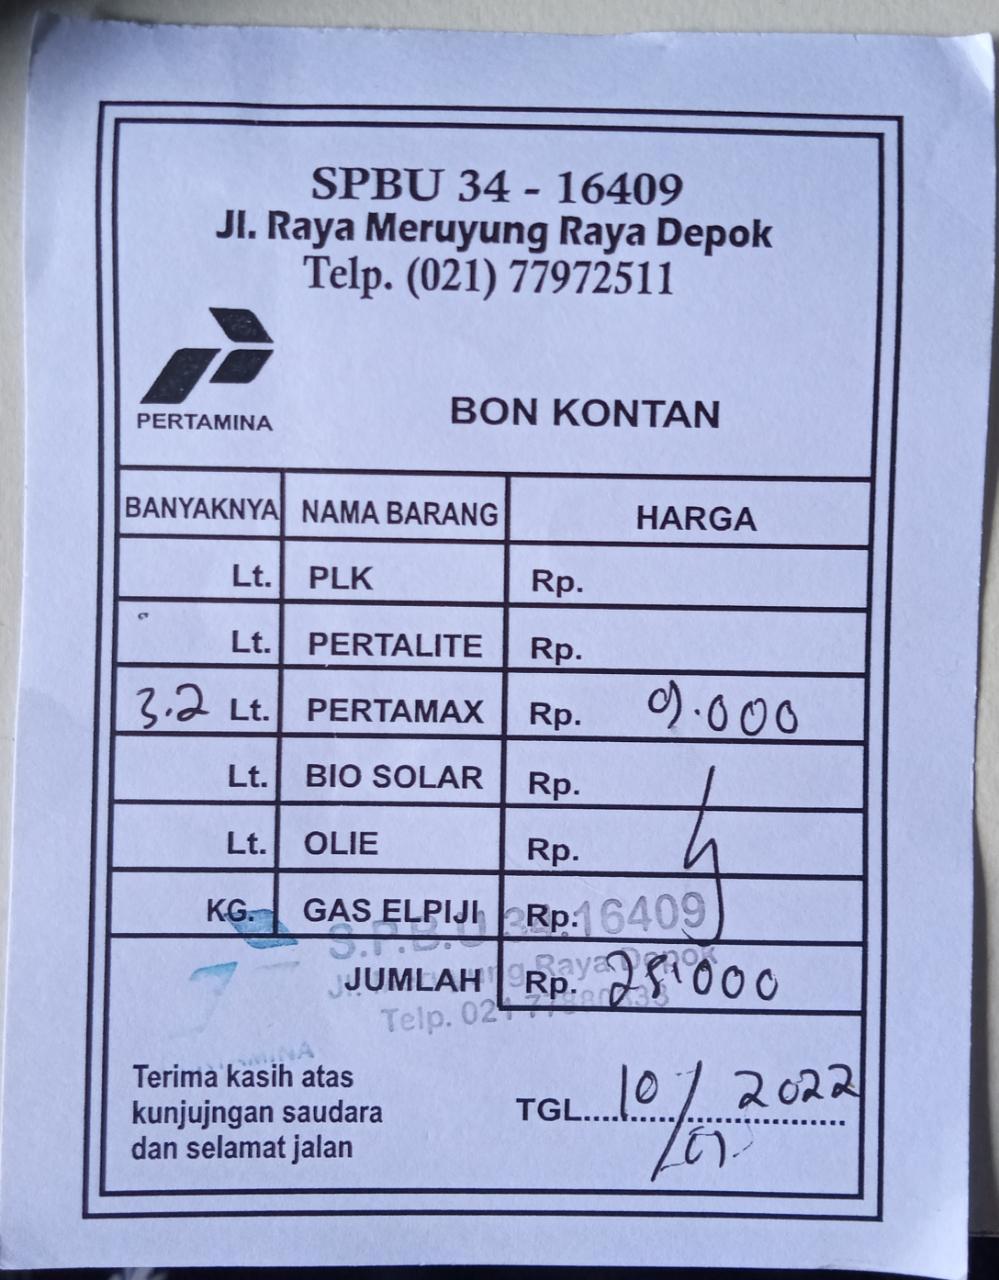 SPBU 34 - 16409
Jl. Raya Meruyung Raya Depok
Telp. (021) 77972511
PERTAMINA
BON KONTAN
BANYAKNYA NAMA BARANG HARGA
Lt. PLK Rp.
Lt. PERTALITE Rp.
3.2 Lt. PERTAMAX Rp. 9.000
Lt. BIO SOLAR Rp.
Lt. OLIE Rp.
KG. GAS ELPIJI Rp.
S.P.B.U 34.16409
JUMLAH Rp. 28.000
Raya Depok
Telp. 021
Terima kasih atas
kunjujngan saudara
dan selamat jalan
TGL.... 10/ 2022